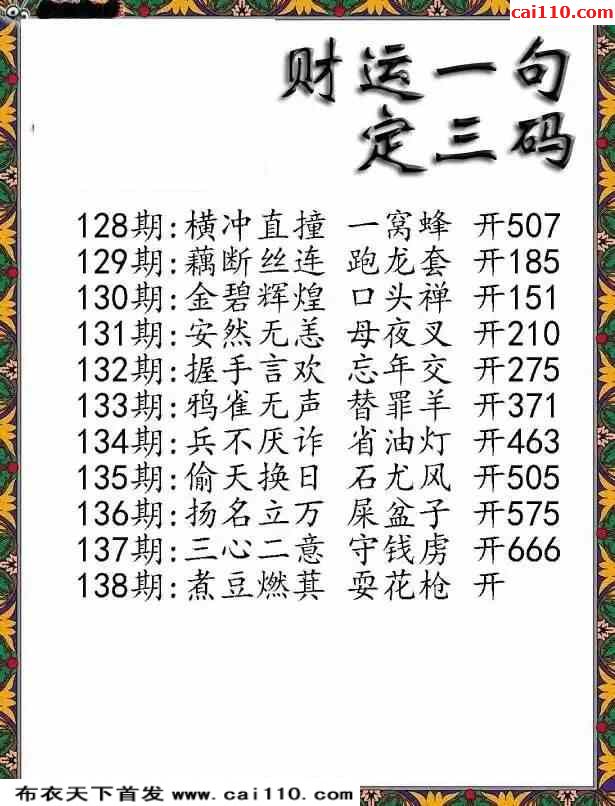 cai110.com
财运一句
定三码
128期:横冲直撞 一窝蜂 开507
129期:藕断丝连 跑龙套 开185
130期:金碧辉煌 口头禅 开151
131期:安然无恙 母夜叉 开210
132期:握手言欢 忘年交 开275
133期:鸦雀无声 替罪羊 开371
134期:兵不厌诈 省油灯 开463
135期:偷天换日 石尤风 开505
136期:扬名立万 屎盆子 开575
137期:三心二意 守钱虏 开666
138期:煮豆燃萁 耍花枪 开
布衣天下首发 www.cai110.com